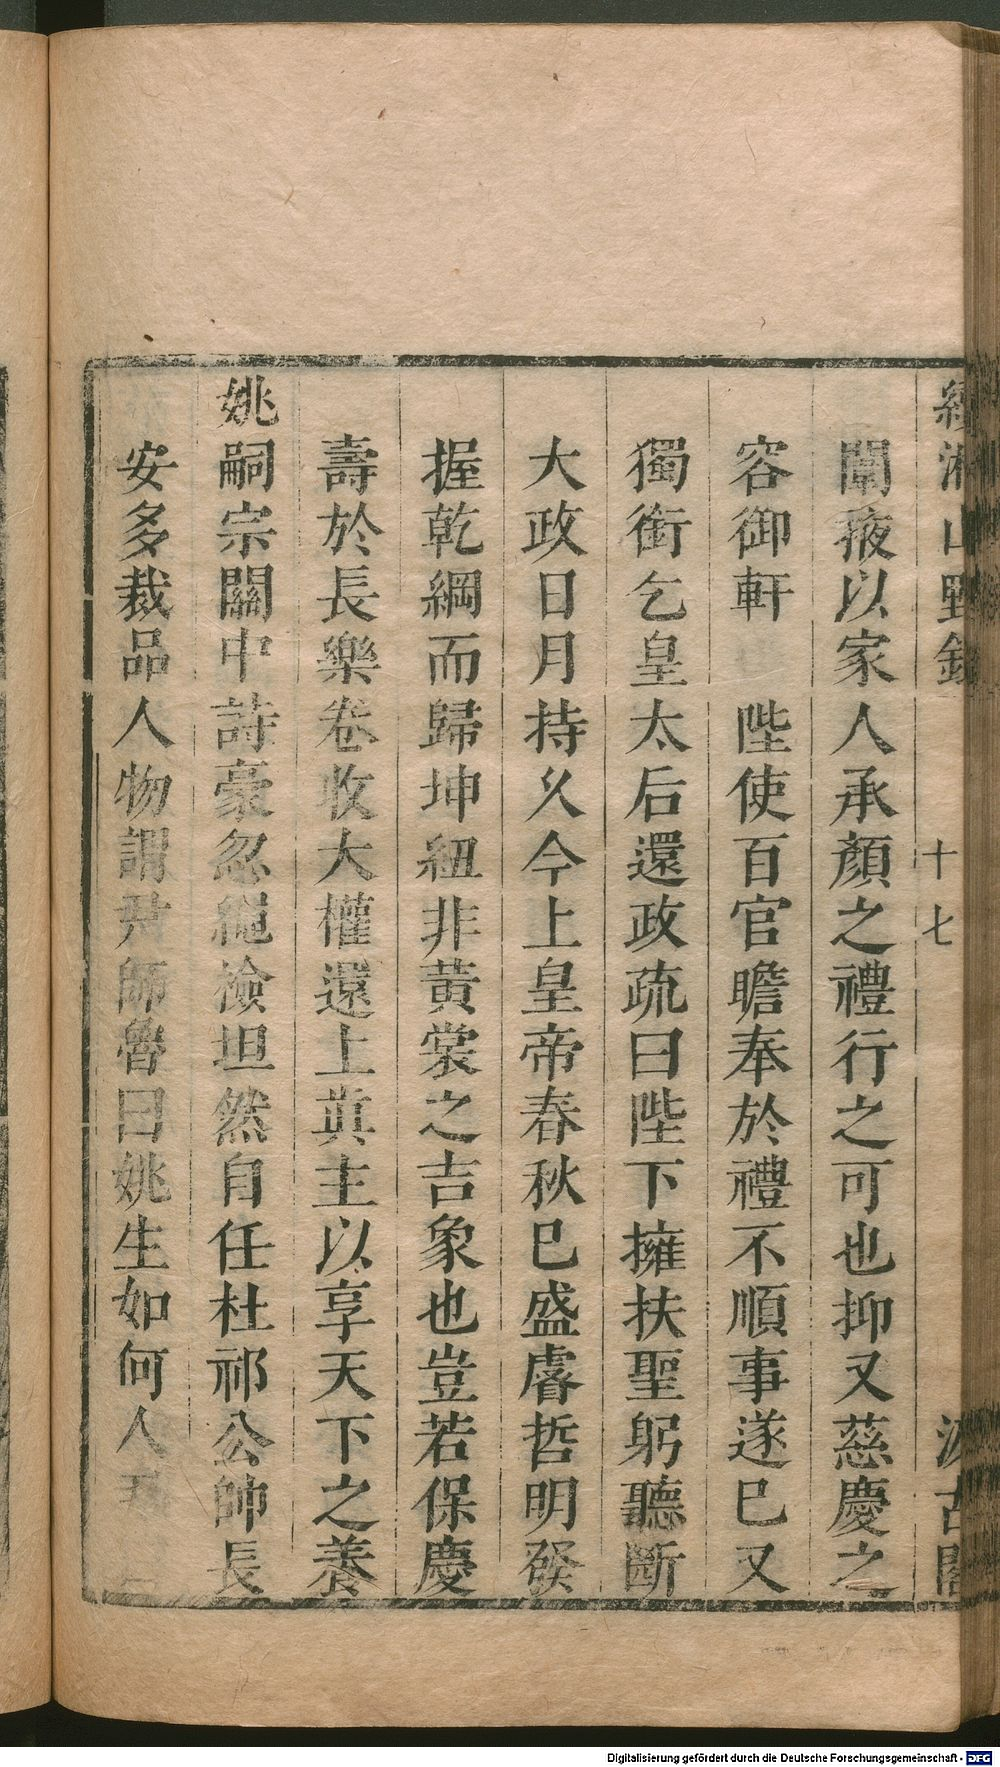 續湘山野錄 十七 汲古閣
闈掖以家人承顏之禮行之可也抑又慈慶之
容御軒 陛使百官瞻奉於禮不順事遂巳又
獨銜乞皇太后還政疏曰陛下擁扶聖躬聽斷
大政日月持久今上皇帝春秋巳盛睿哲明發
握乾綱而歸坤紐非黃裳之吉象也豈若保慶
壽於長樂卷收大權還上眞主以享天下之養
姚嗣宗關中詩豪忽繩檢坦然自任杜祁公帥長
安多裁品人物謂尹師魯曰姚生如何人
Digitalisierung gefördert durch die Deutsche Forschungsgemeinschaft - DFG